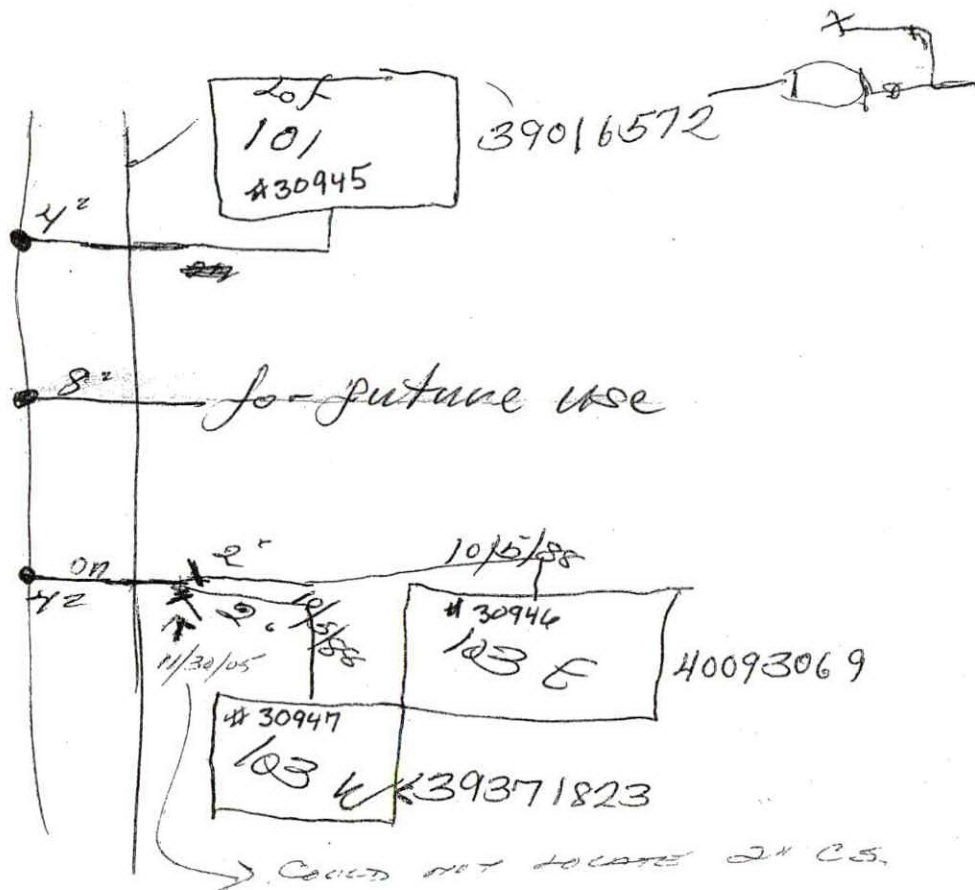 Lot
101
#30945
39016572
4"
8" for future use
on
4"
2"
10/5/88
2"
10/5/88
11/30/05
#30946
103 E
40093069
#30947
103 W
39371823
COULD NOT LOCATE 2" C.S.